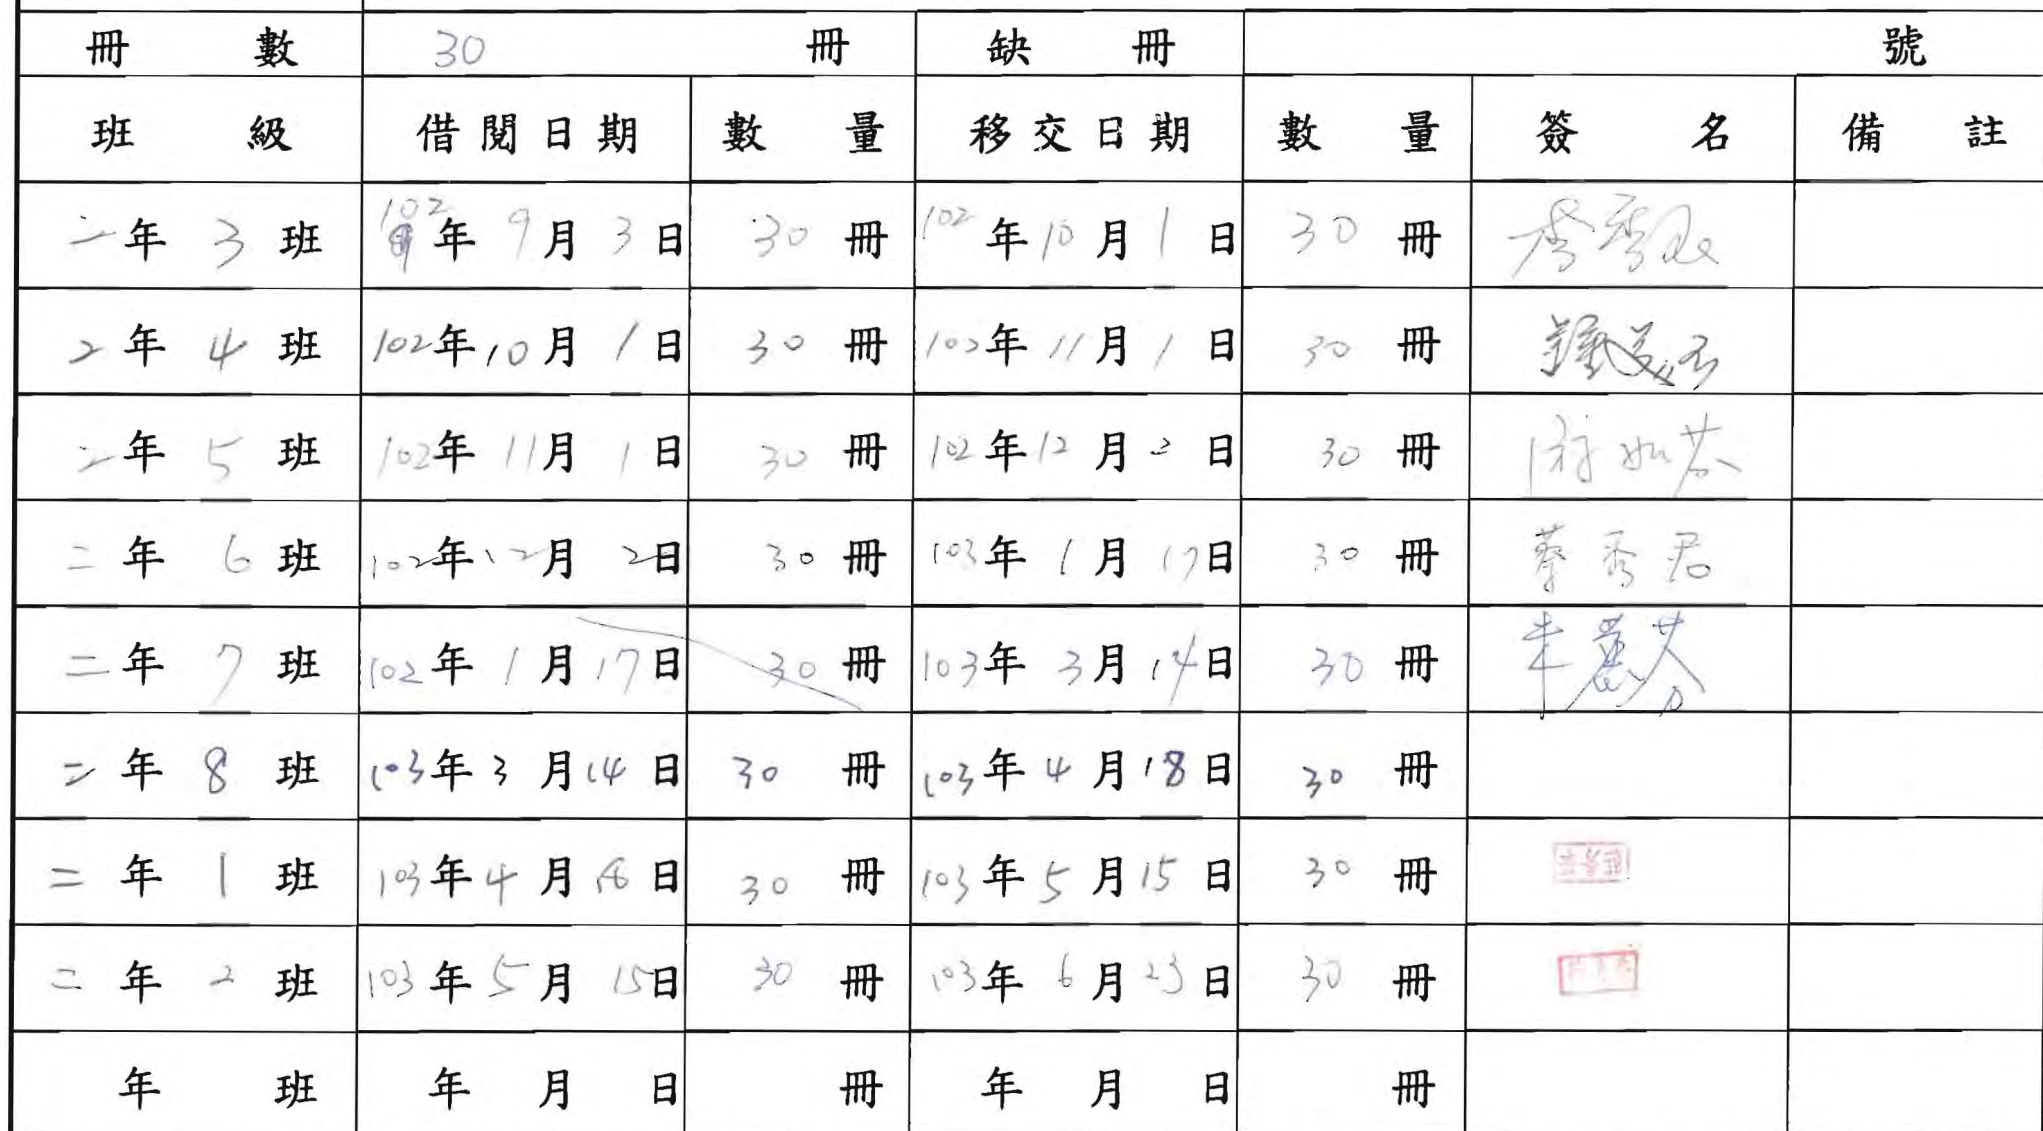 冊數 30 冊 缺冊 號
班級 借閱日期 數量 移交日期 數量 簽名 備註
二年 3 班 102年 9月 3日 30 冊 102年 10月 1日 30 冊
2年 4 班 102年 10月 1日 30 冊 102年 11月 1日 30 冊
二年 5 班 102年 11月 1日 30 冊 102年 12月 2日 30 冊
二年 6 班 102年 12月 2日 30 冊 103年 1月 17日 30 冊 蔡秀君
二年 7 班 102年 1月 17日 30 冊 103年 3月 14日 30 冊
二年 8 班 103年 3月 14日 30 冊 103年 4月 18日 30 冊
二年 1 班 103年 4月 日 30 冊 103年 5月 15日 30 冊
二年 2 班 103年 5月 15日 30 冊 103年 6月 23日 30 冊
年 班 年 月 日 冊 年 月 日 冊